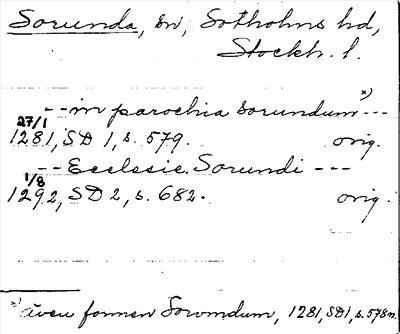 Sorunda, sn, Sotholms hd,
Stockh. l.
- - in parochia sorundum *) - - -
27/1
1281, SD 1, s. 579. orig.
- - Ecclesie Sorundi - - -
1/8
1292, SD 2, s. 682. orig.
*) även formen Sorwmdum, 1281, SD1, s. 578 n.